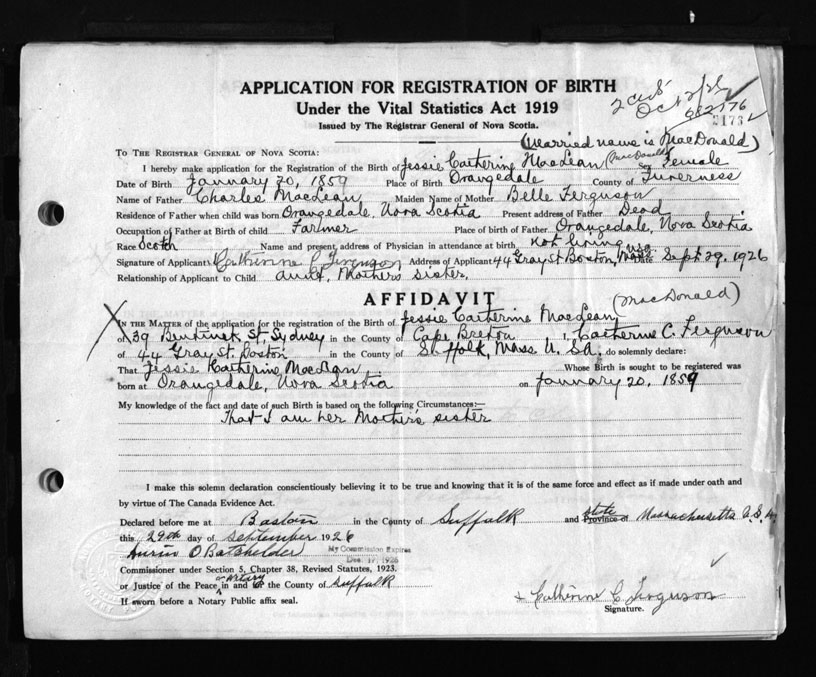 APPLICATION FOR REGISTRATION OF BIRTH
Under the Vital Statistics Act 1919
Issued by The Registrar General of Nova Scotia.
Oct 2/26
082176
2173
(Married name is MacDonald)
TO THE REGISTRAR GENERAL OF NOVA SCOTIA:
I hereby make application for the Registration of the Birth of Jessie Catherine MacLean (MacDonald) Sex Female
Date of Birth January 20, 1859 Place of Birth Orangedale County of Inverness
Name of Father Charles MacLean Maiden Name of Mother Belle Ferguson
Residence of Father when child was born Orangedale, Nova Scotia Present address of Father Dead
Occupation of Father at Birth of child Farmer Place of birth of Father Orangedale, Nova Scotia
Race Scotch Name and present address of Physician in attendance at birth not living
Signature of Applicant Catherine C Ferguson Address of Applicant 44 Gray St Boston, Mass Date Sept 29, 1926
Relationship of Applicant to Child aunt, Mothers sister
AFFIDAVIT
(MacDonald)
IN THE MATTER of the application for the registration of the Birth of Jessie Catherine MacLean
of 39 Bentinck St. Sydney in the County of Cape Breton , Catherine C. Ferguson
of 44 Gray St. Boston in the County of Suffolk, Mass U. S.A. do solemnly declare:
That Jessie Katherine MacLean Whose Birth is sought to be registered was
born at Orangedale, Nova Scotia on January 20, 1859
My knowledge of the fact and date of such Birth is based on the following Circumstances:—
That I am her Mother's sister
I make this solemn declaration conscientiously believing it to be true and knowing that it is of the same force and effect as if made under oath and
by virtue of The Canada Evidence Act.
Declared before me at Boston in the County of Suffolk and State Province of Massachusetts U.S.A.
this 29th day of September 1926
O Batchelder My Commission Expires
Dec. 17, 1926
Commissioner under Section 5, Chapter 38, Revised Statutes, 1923.
or Justice of the Peace or Notary in and for the County of Suffolk
If sworn before a Notary Public affix seal.
Catherine C Ferguson
Signature.